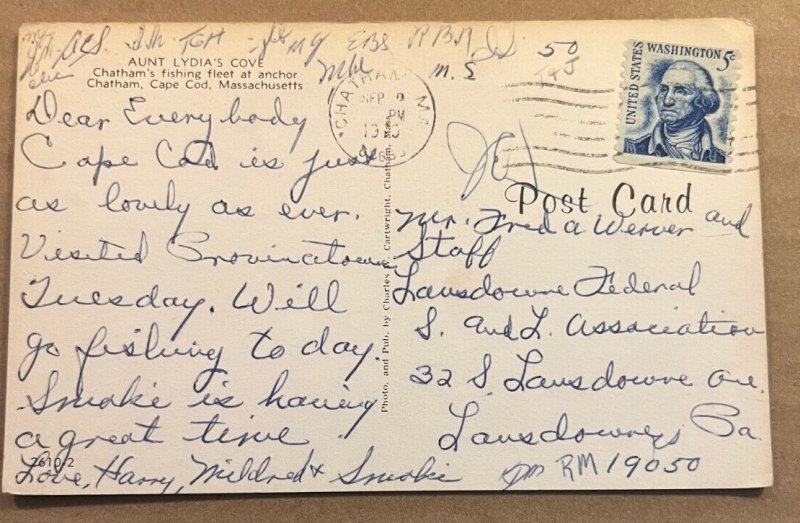 AUNT LYDIA'S COVE
Chatham's fishing fleet at anchor
Chatham, Cape Cod, Massachusetts
Dear Everybody
Cape Cod is just
as lovely as ever.
Visited Provincetown
Tuesday. Will
go fishing to day.
Smokie is having
a great time
Love, Harry, Mildred & Smokie
2610/2
Photo. and Pub. by Charles Cartwright, Chatham, Mass.
CHATHAM
SEP 9
PM
MASS
UNITED STATES
WASHINGTON 5c
Post Card
Mr. Fred A Werner and
Staff
Lansdowne Federal
S. and L. Association
32 S. Lansdowne Ave.
Lansdowne, Pa.
RM 19050
TGH
MG EBS RBN
M.S
50